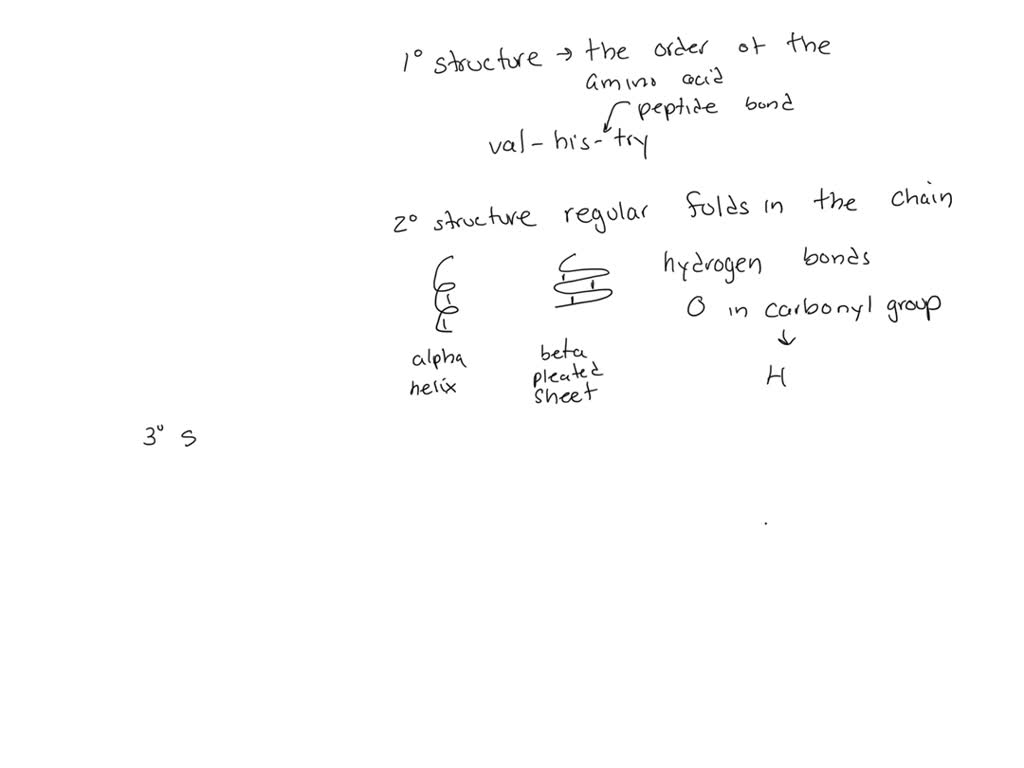 1° structure → the order of the
amino acid
peptide bond
val - his - try
2° structure regular folds in the chain
hydrogen bonds
O in carbonyl group
↓
H
alpha
helix
beta
pleated
sheet
3° s